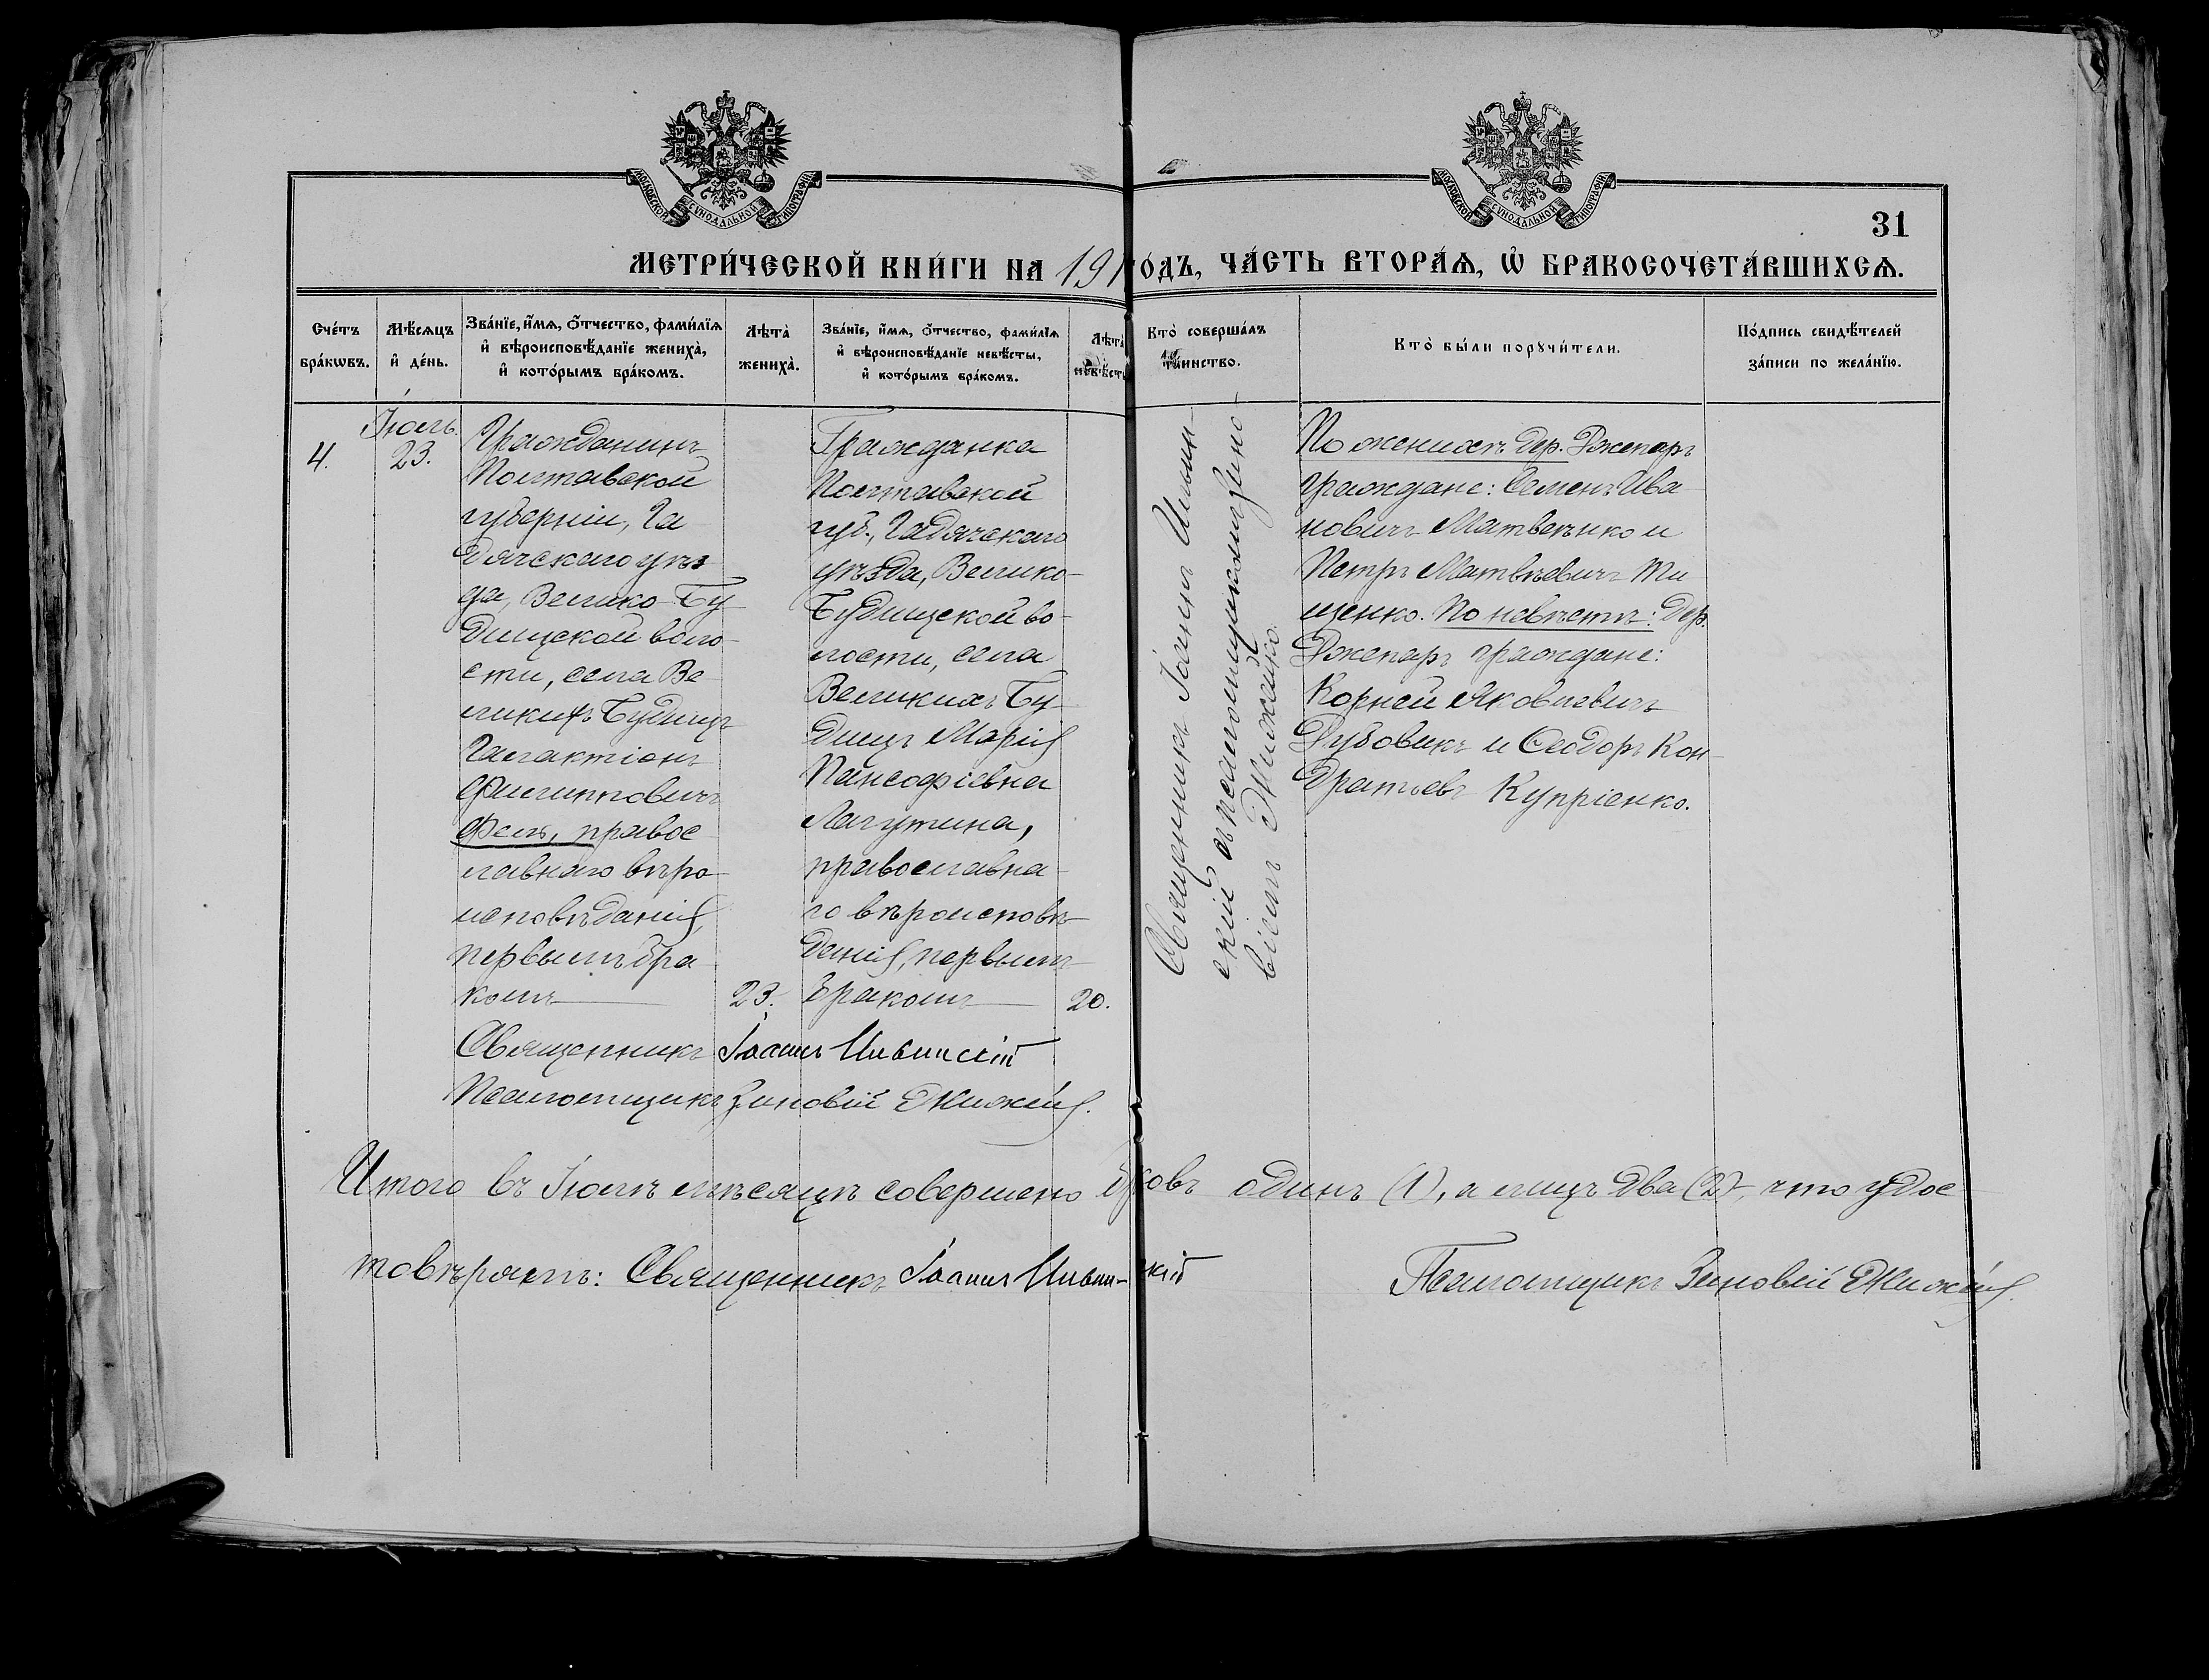 МОСКОВСКОЙ СУНОДАЛЬНОЙ ТИПОГРАФІИ
МОСКОВСКОЙ СУНОДАЛЬНОЙ ТИПОГРАФІИ
31
МЕТРИ́ЧЕСКОЙ КНИ́ГИ НА 191 О́ДЪ, ЧА́СТЬ ВТОРА́Ѧ, Ѽ БРАКОСОЧЕТА́ВШИХСѦ.
Сче́тъ
бра́кѡвъ.
Мѣ́сѧцъ
и҆ де́нь.
Зва́нїе, и҆́мѧ, о҆́тчество, фами́лїѧ
и҆ вѣроисповѣ́данїе жениха̀,
и҆ кото́рымъ бра́комъ.
Лѣта̀
жениха̀.
Зва́нїе, и҆́мѧ, о҆́тчество, фами́лїѧ
и҆ вѣроисповѣ́данїе невѣ́сты,
и҆ кото́рымъ бра́комъ.
Лѣта̀
невѣ́сты
Кто̀ соверша́лъ
та́инство.
Кто̀ бы́ли порꙋчи́тели.
По́дпись свидѣ́телей
за́писи по жела́нїю.
4.
Іюль.
23.
Гражданинъ
Полтавской
губерніи, Га
дячскаго уѣз
да, Велико-Бу
дищской воло
сти, села Ве
ликихъ Будищъ
Галактіонъ
Филипповичъ
Фень, правос
лавнаго вѣро
исповѣданія,
первымъ бра
комъ
23.
Гражданка
Полтавской
губ., Гадячскаго
уѣзда, Велико-
Будищской во-
лости, села
Великихъ Бу-
дищъ Марія
Пансофіевна
Лагутина,
православна-
го вѣроисповѣ-
данія, первымъ
бракомъ
20.
Священникъ Іоаннъ Ильин-
скій съ псаломщикомъ Зино-
віемъ Жижкою.
По женихѣ дер. Джепаръ
граждане: Семенъ Ива
новичъ Матвѣенко и
Петръ Матвѣевичъ Ти
щенко. По невѣстѣ: Дер.
Джепаръ граждане:
Корней Яковлевичъ
Дубовикъ и Ѳеодоръ Кон-
дратьевъ Купріенко.
Священникъ Іоаннъ Ильинскій
Псаломщикъ Зиновій
Итого въ Іюлѣ мѣсяцѣ совершено ковъ одинъ (1), а лицъ два (2), что удос
товѣряемъ: Священникъ Іоаннъ Ильин- кій Псаломщикъ Зиновій